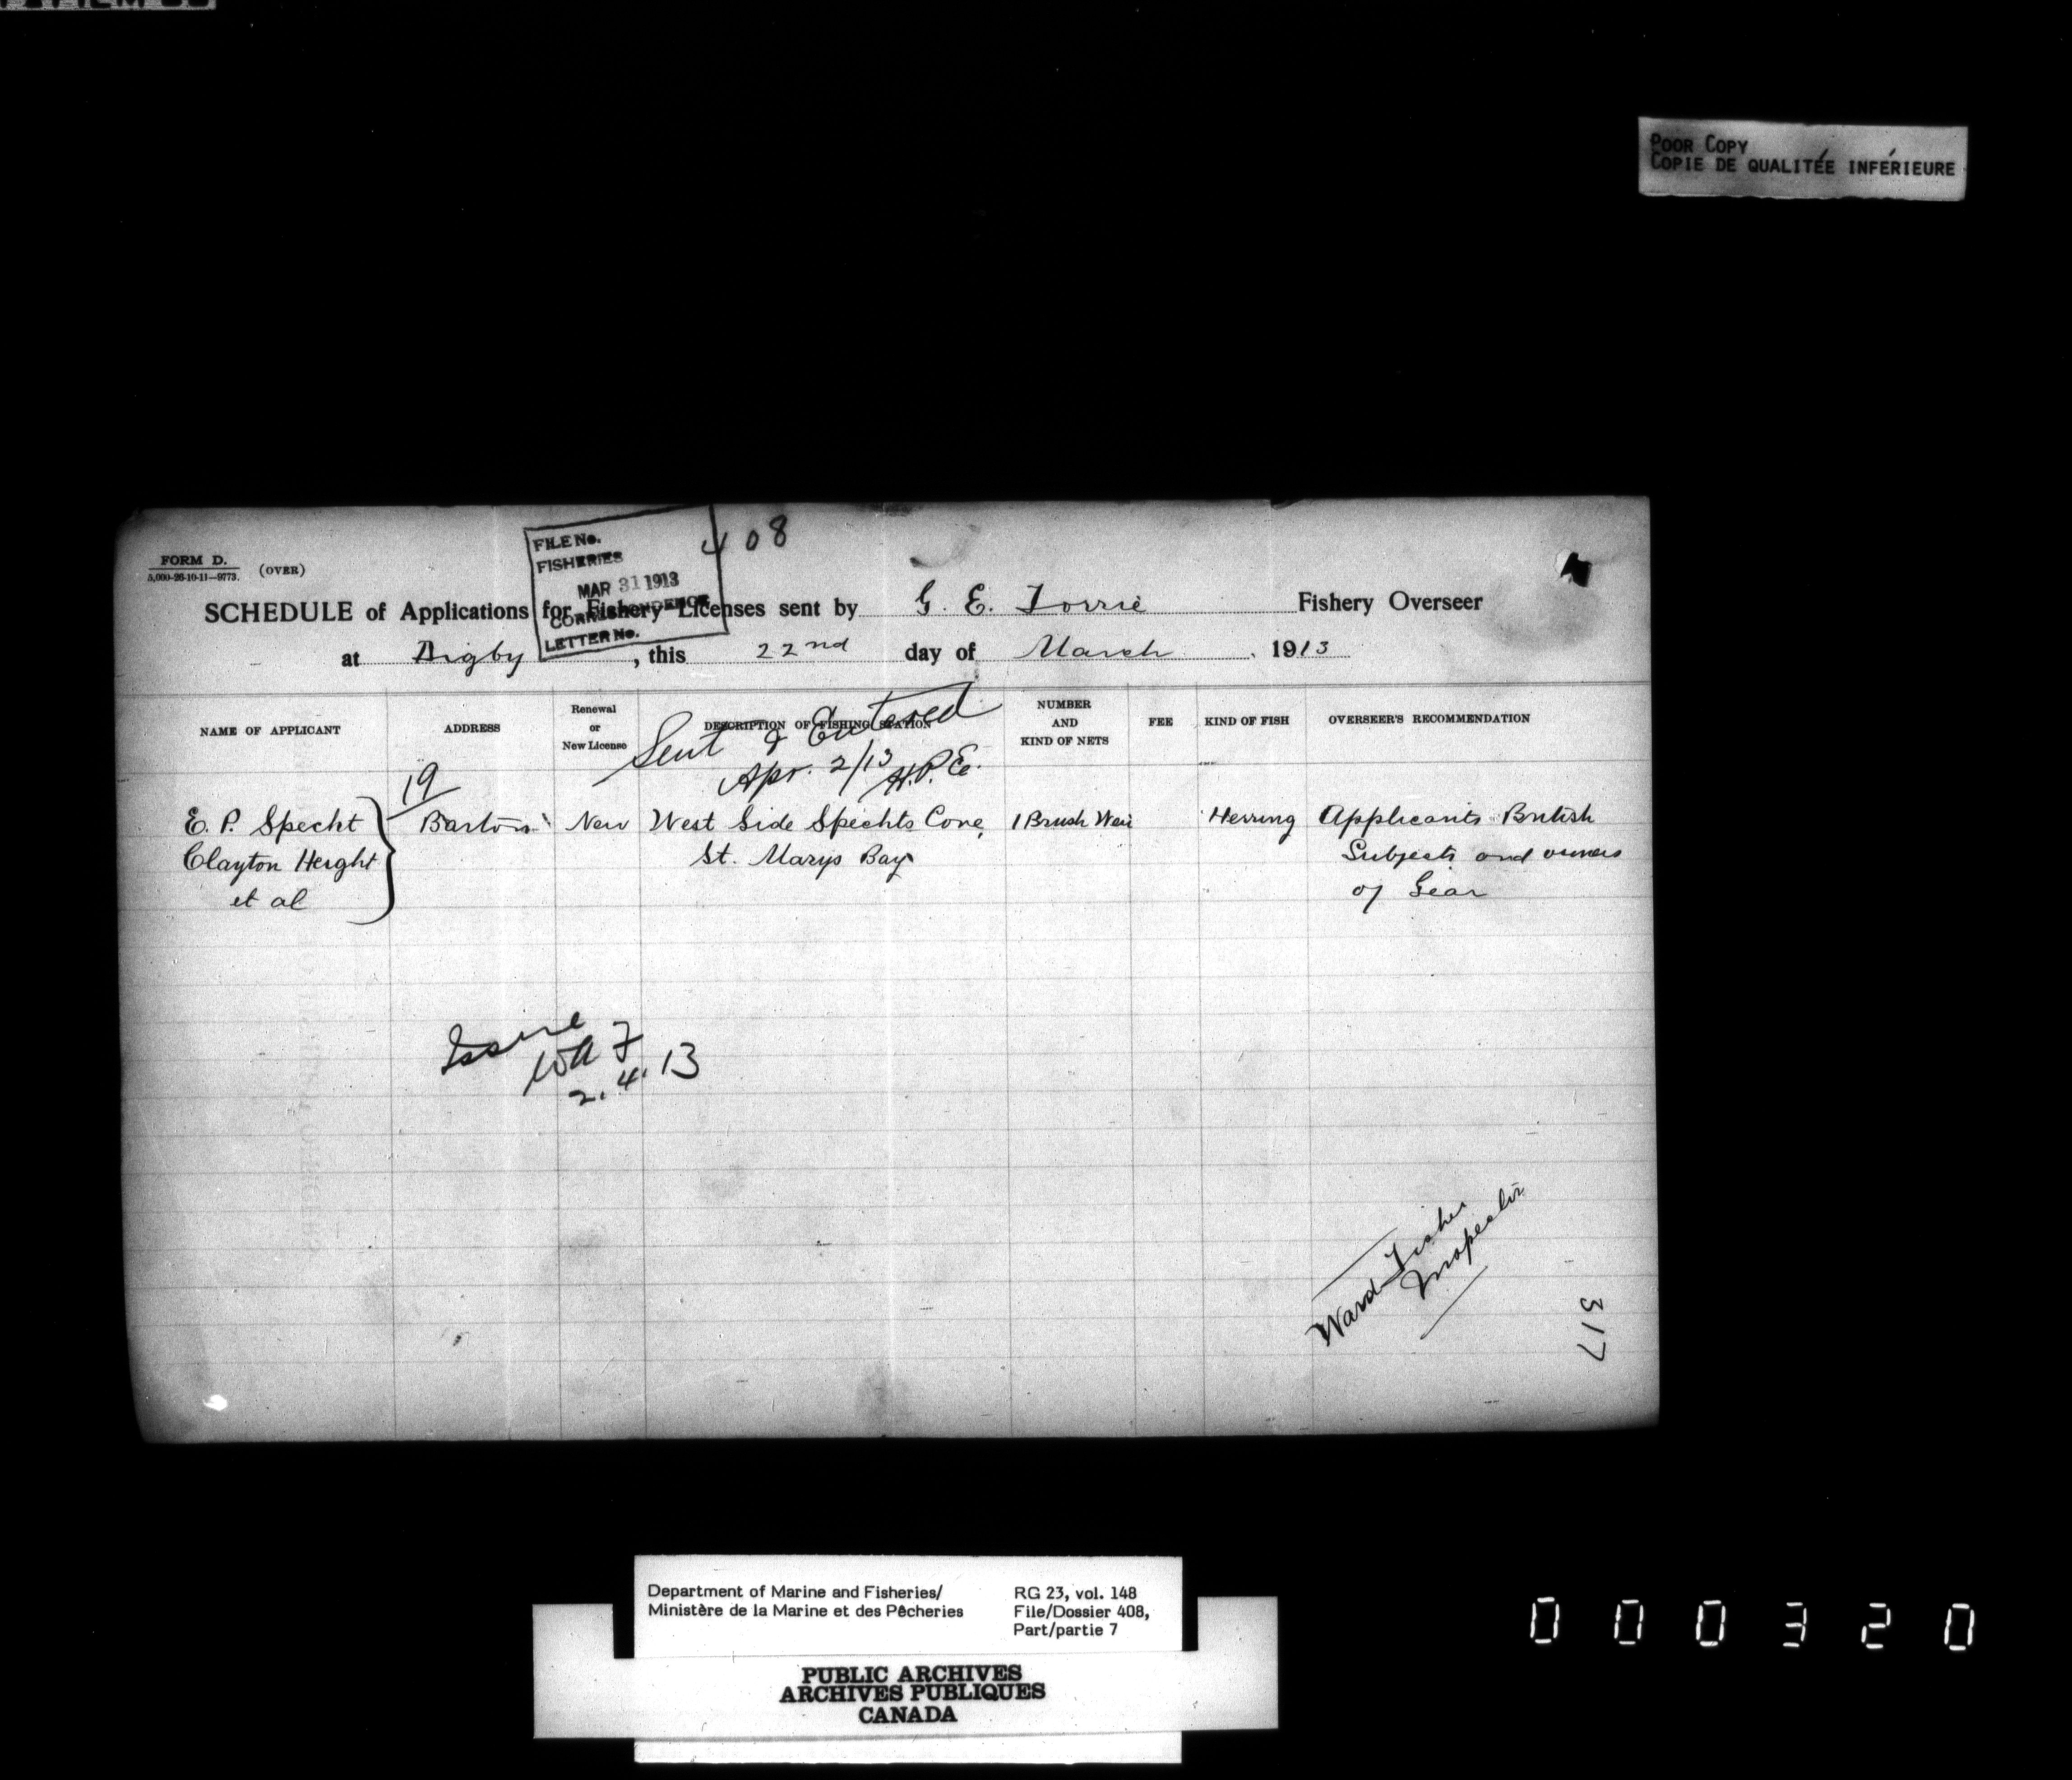 POOR COPY
COPIE DE QUALITÉE INFÉRIEURE
FILE No. 408
FISHERIES
MAR 31 1913
CORRESPONDENCE
LETTER No.
FORM D.
5,000-26-10-11—9773.
(OVER)
SCHEDULE of Applications for Fishery Licenses sent by G. E. Torrie Fishery Overseer
at Digby, this 22nd day of March 1913
NAME OF APPLICANT
ADDRESS
Renewal
or
New License
DESCRIPTION OF FISHING STATION
NUMBER
AND
KIND OF NETS
FEE
KIND OF FISH
OVERSEER'S RECOMMENDATION
Sent & Entered
Apr. 2/13 H.P.E.
19
E. P. Specht } Barton New West Side Spechts Cove, 1 Brush Weir Herring Applicants British
Clayton Height St. Marys Bay Subjects and owners
et al of Gear
Issue
2.4.13
Ward Fisher
Inspector
317
Department of Marine and Fisheries/
Ministère de la Marine et des Pêcheries
RG 23, vol. 148
File/Dossier 408,
Part/partie 7
PUBLIC ARCHIVES
ARCHIVES PUBLIQUES
CANADA
000320